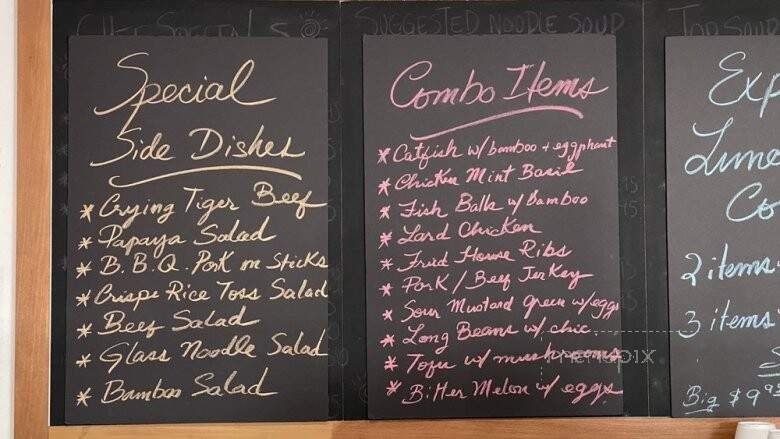 SUGGESTED NOODLE SOUP
Special
Side Dishes
* Crying Tiger Beef
* Papaya Salad
* B.B.Q. Pork on Sticks
* Crispe Rice Toss Salad
* Beef Salad
* Glass Noodle Salad
* Bamboo Salad
Combo Items
* Catfish w/ bamboo + eggphant
* Chicken Mint Basil
* Fish Balls w/ Bamboo
* Lard Chicken
* Fried House Ribs
* Pork / Beef Jerkey
* Sour Mustard green w/ eggs
* Long Beans w/ chic
* Tofu w/ mushrooms
* Bitter Melon w/ eggs
Exp
Lunc
Co
2 items
3 items
Big $ 9.9